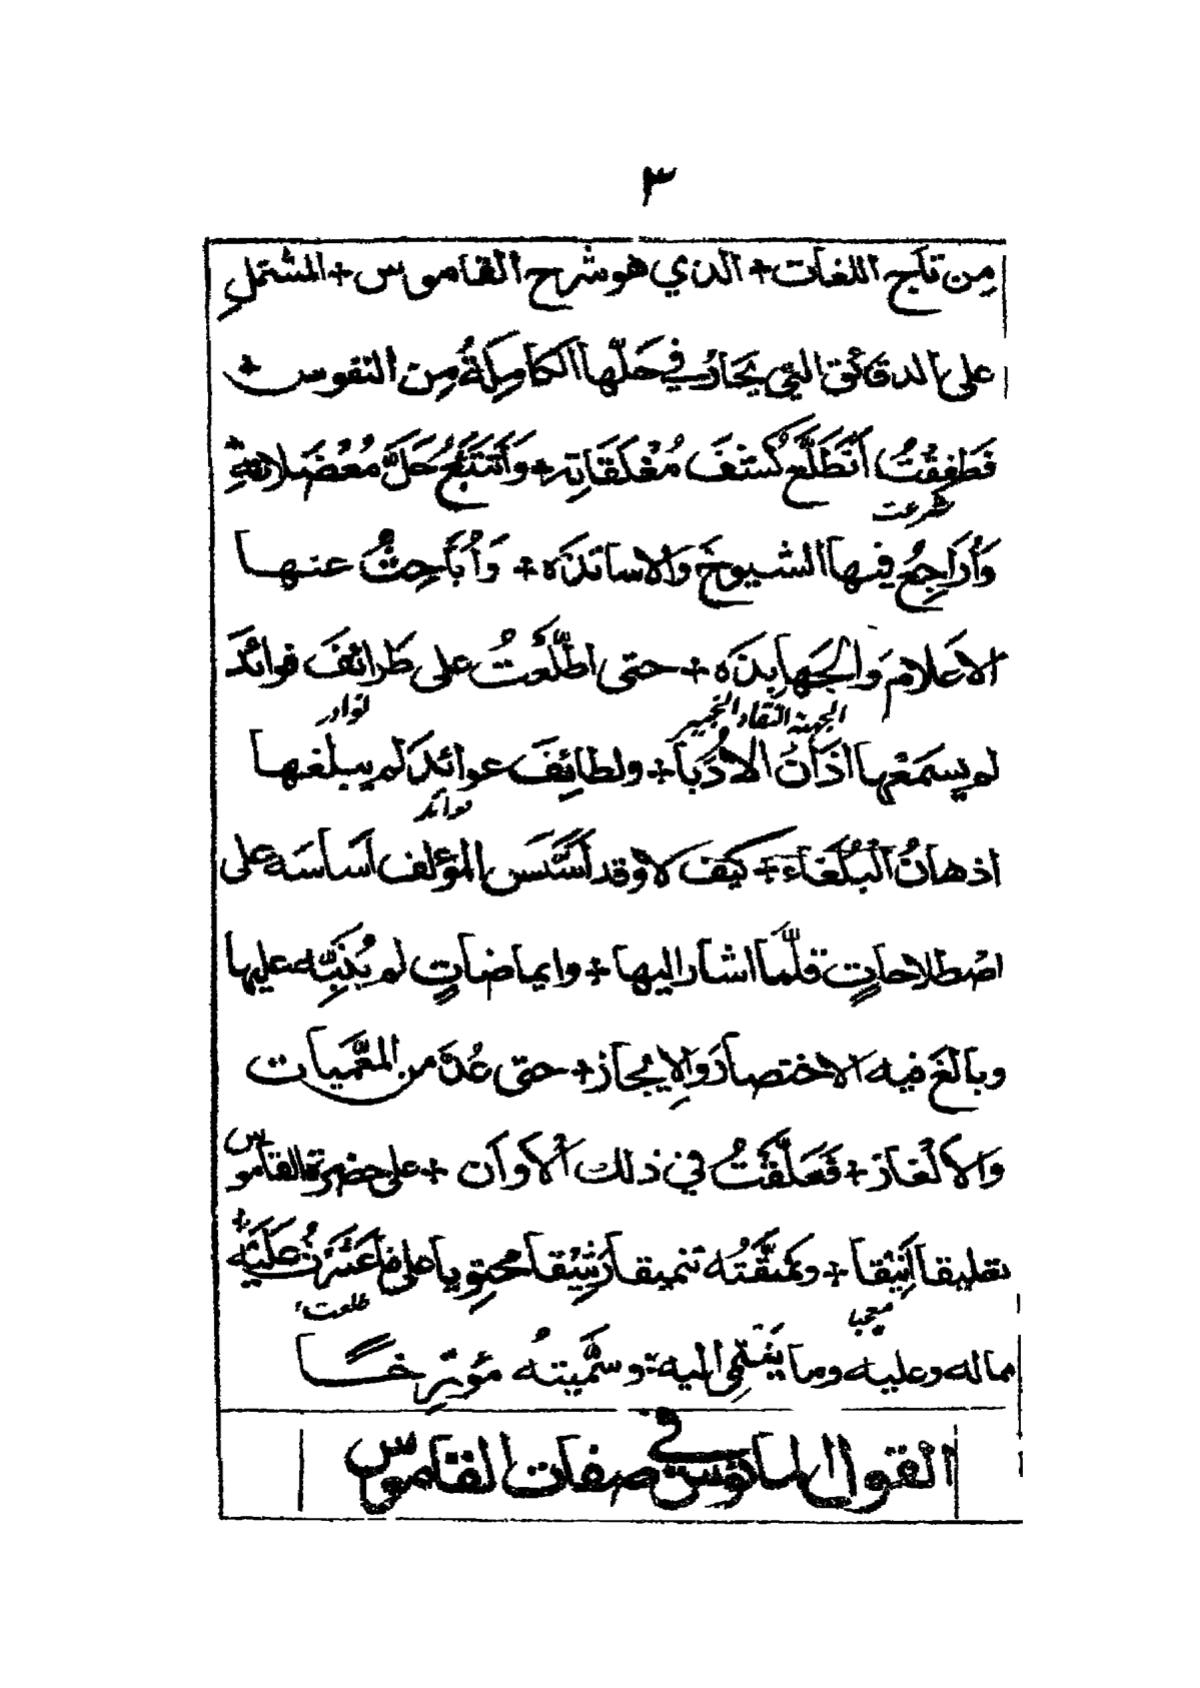 ٣
مِن تاج اللغات + الذي هو شرح القاموس + المشتملِ
على الدقائق التي يَحَارُ في حَلّها الكامِلَةُ مِن النفوس +
فَطَفِقْتُ أَتَطَلَّعُ كَشْفَ مُغْلَقَاتِهِ + وَأَتَتَبَّعُ حَلَّ مُعْضَلاتِهِ +
شرعت
وَأُرَاجِعُ فيها الشيوخَ وَالاساتذَه + وَأُبَاحِثُ عنها
الاعَلامَ وَالجَهابِذَه + حتى اطَّلَعْتُ على طَرائفَ فوائدَ
الجهبذ النقاد الخبير
نوادر
لم يسمَعْها اذَانُ الادَُبا + ولطائِفَ عوائِدَ لم يبلغها
فوائد
اذهانُ الْبُلَغَاءِ + كيف لا وقد أسَّسَ المؤلف أساسَه على
اصْطلاحاتٍ قلَّمَا اشار اليها + وايماضاتٍ لم يُنَبِّه عليها
وبالَغَ فيه الاختصارَ وَالإيجاز + حتى عُدَّ من المُعَمَّيات
وَالألْغاز + فَعَلَّقْتُ في ذلك الأوان + على حضرة القاموس
تعليقا أنِيْقا + ونَمَّقْتُه تنميقا رَشِيْقا مُحتويا على ما عَثَرْتُ عَلَيْه +
معجبا
طلعت
ماله وعليه وما يَنْتَمِي اليه + وسَمَّيتهُ مُؤرِّخًا
القول المأنوس في صفات القاموس